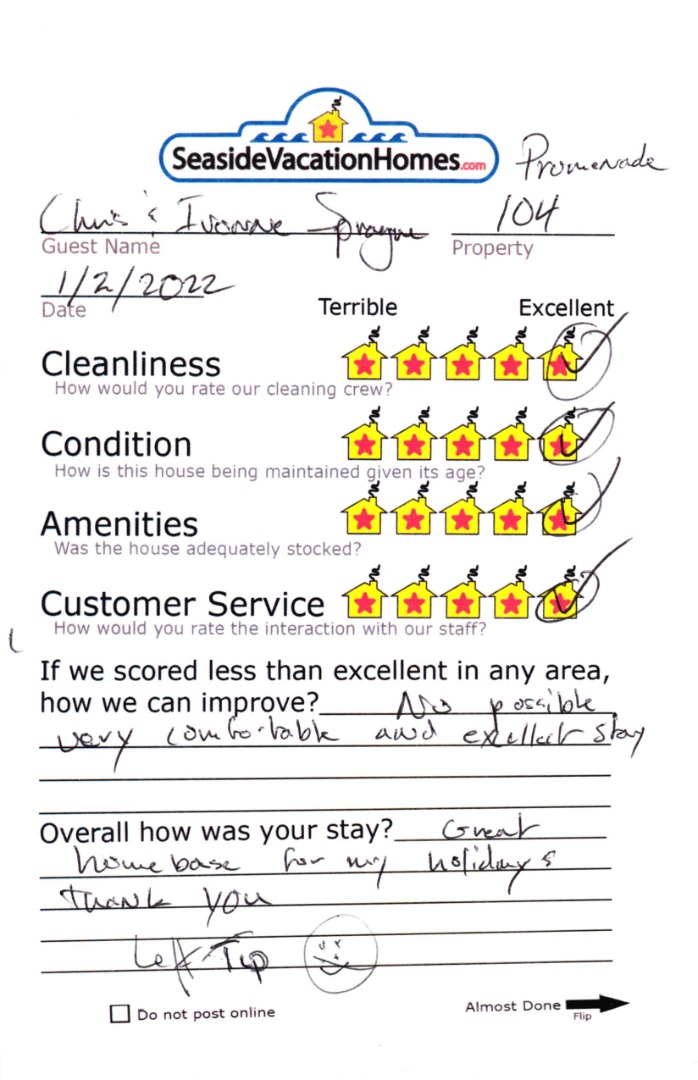 SeasideVacationHomes.com Promenade
Chris & Ivonne Sprague 104
Guest Name Property
1/2/2022
Date Terrible Excellent
Cleanliness
How would you rate our cleaning crew?
Condition
How is this house being maintained given its age?
Amenities
Was the house adequately stocked?
Customer Service
How would you rate the interaction with our staff?
If we scored less than excellent in any area,
how we can improve? No possible
very comfortable and exellect stay
Overall how was your stay? Great
home base for my holidays
Thank you
Left Tip
Do not post online Almost Done
Flip